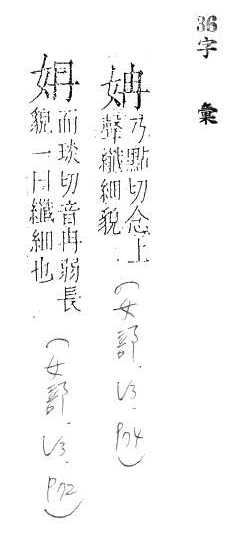 36字彙
姌乃點切念上
聲纖細貌
(女部.V3.P74)
姌而琰切音冉弱長
貌一曰纖細也
(女部.V3.P72)